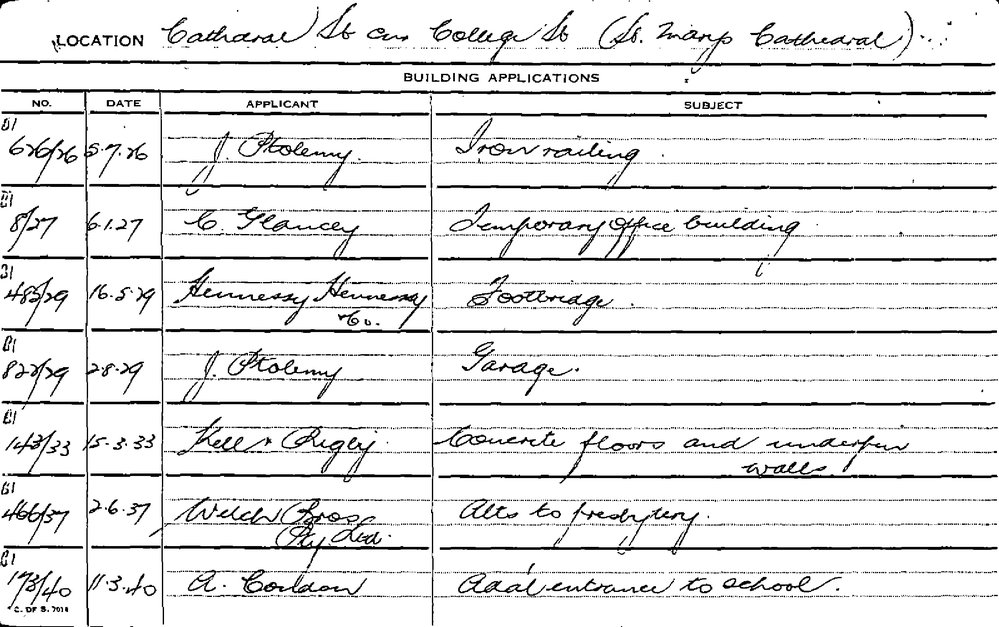 LOCATION Cathedral St cnr College St (St. Marys Cathedral)
BUILDING APPLICATIONS
NO. DATE APPLICANT SUBJECT
B1
626/26 5.7.26 J. Ptolemy. Iron railing.
B1
8/27 6.1.27 C. Glancey Temporary office building
B1
482/29 16.5.29 Hennessy Hennessy Footbridge.
& Co.
B1
822/29 2.8.29 J. Ptolemy Garage.
B1
143/33 15.3.33 Kell & Rigby. Concrete floors and underpin
walls.
B1
466/37 2.6.37 Welch Bros Alts to presbytery.
Pty Ltd.
B1
173/40 11.3.40 A. Add'l entrance to school.
C. OF S. 7018